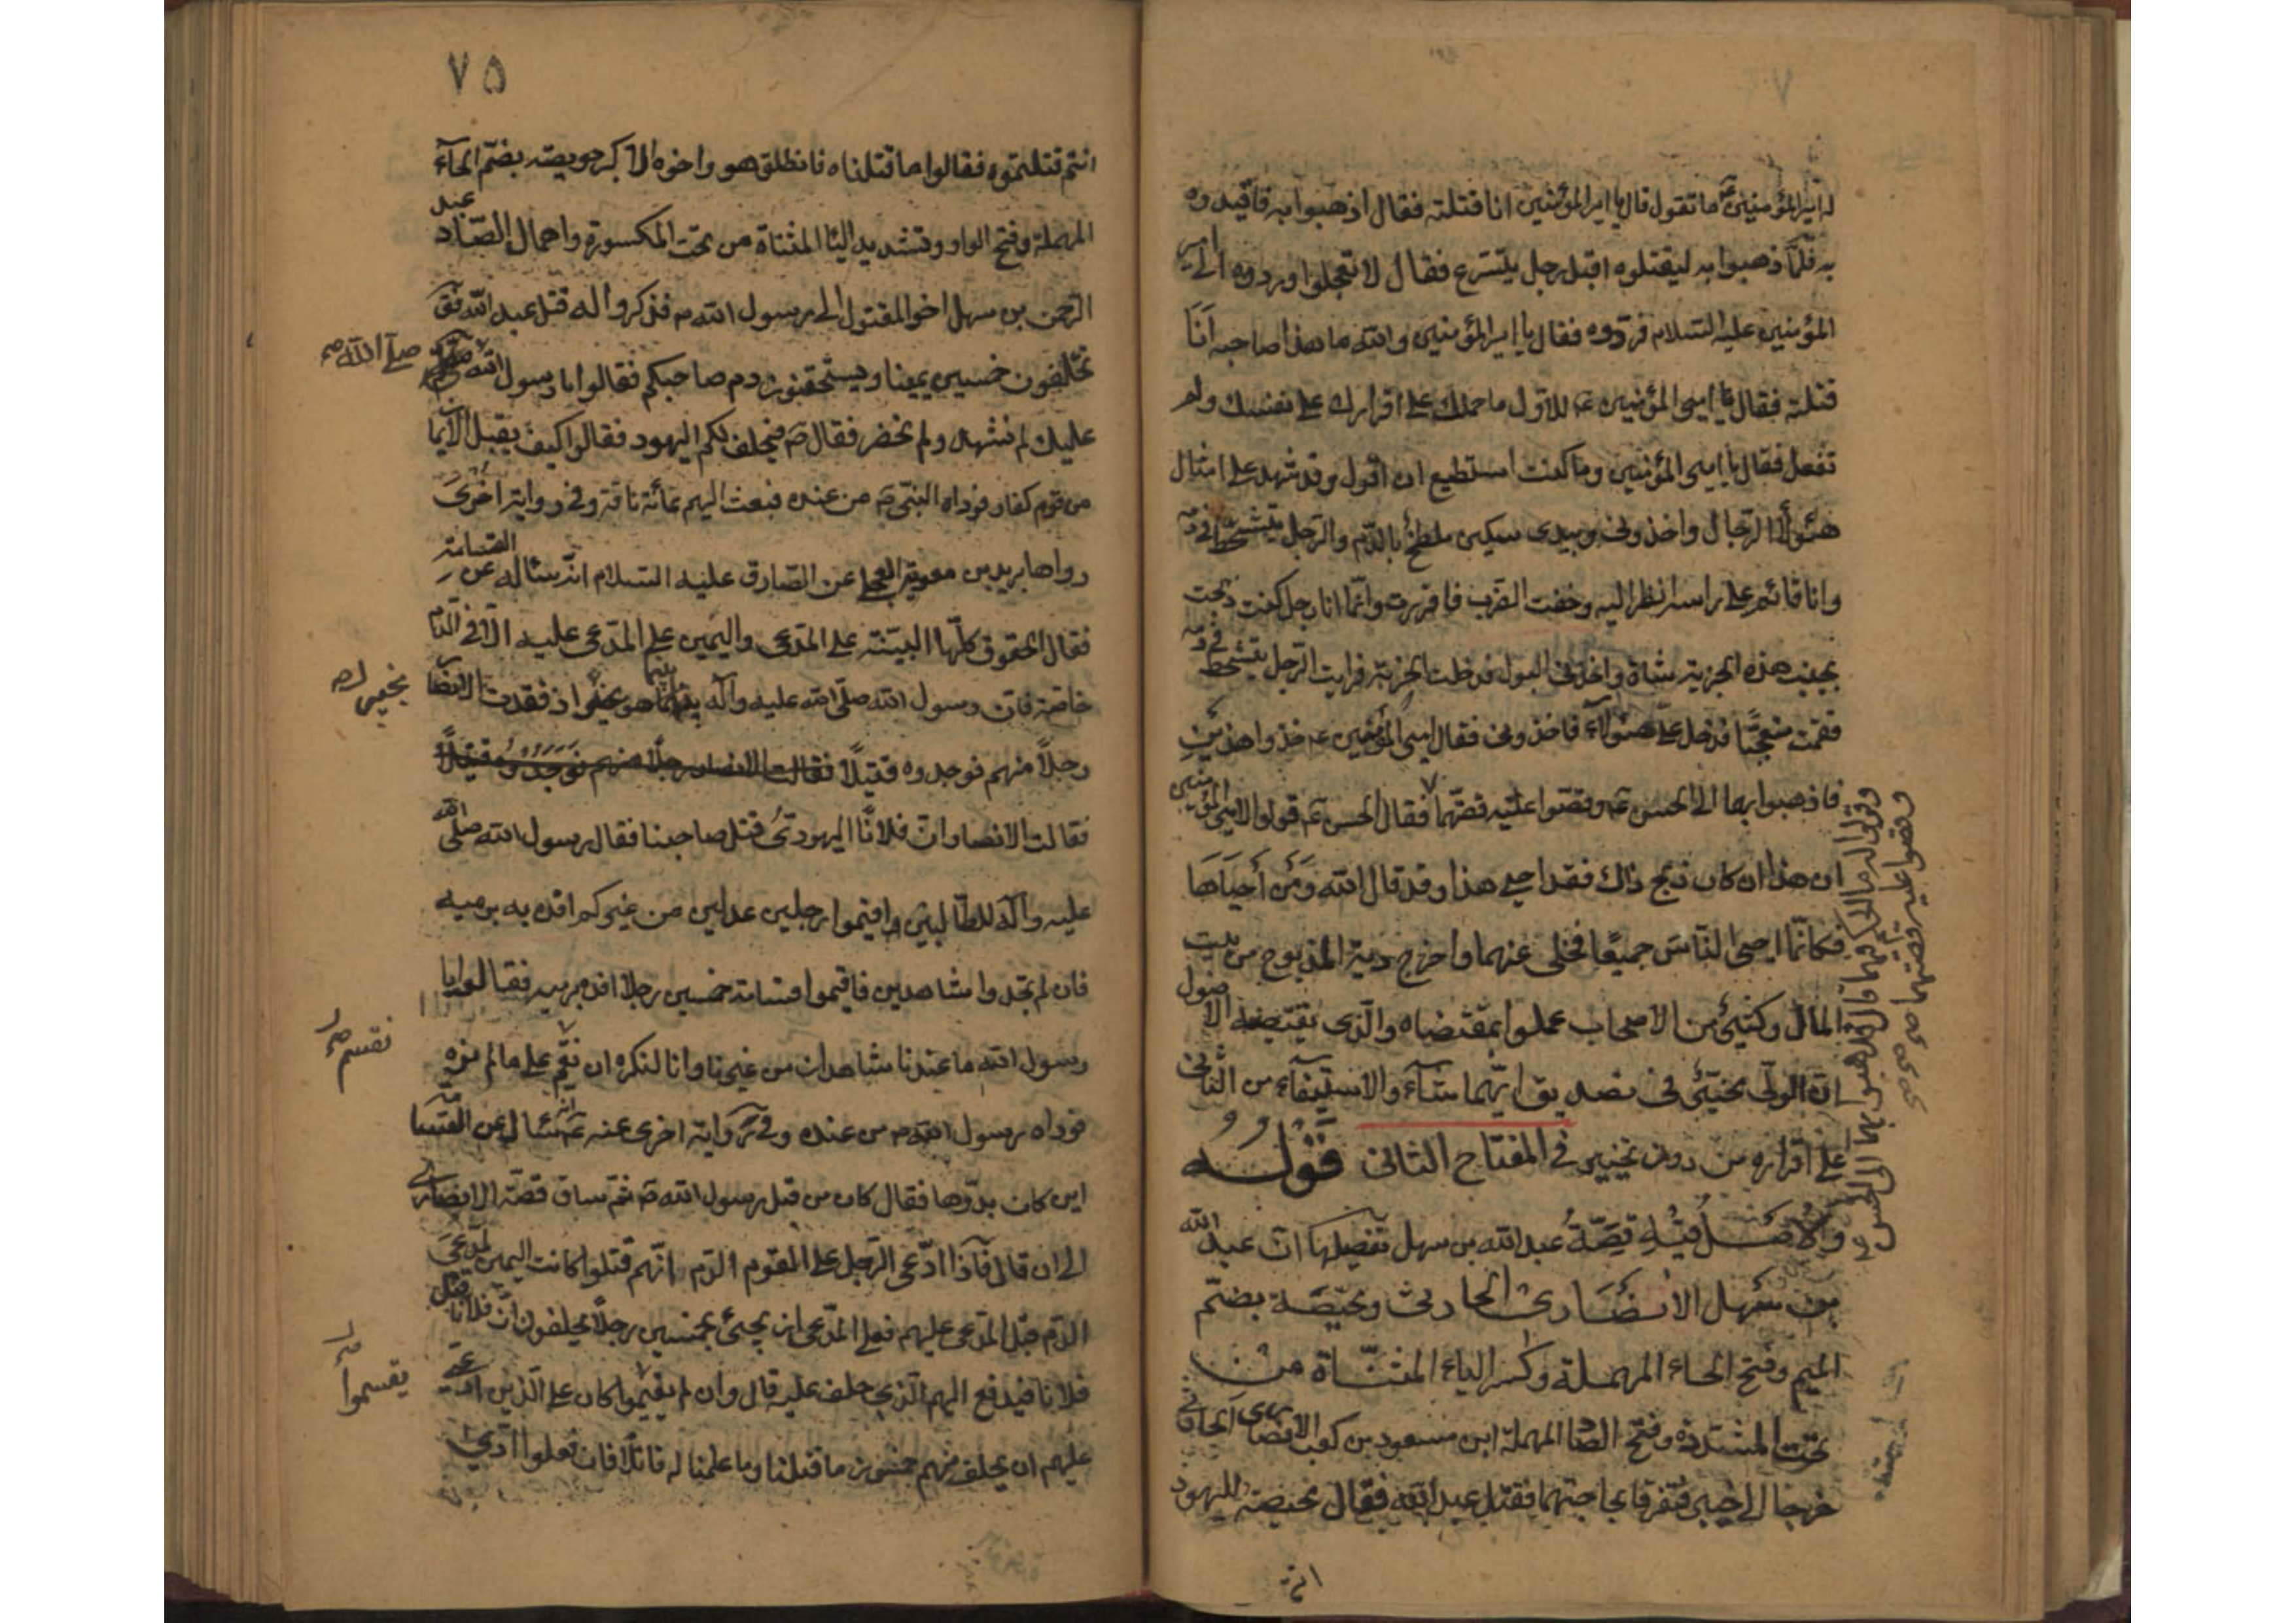 له امير المؤمنين ع ما تقول قال يا امير المؤمنين انا قتلته فقال اذهبوا به فاقيدوه
به فلمّا ذهبوا به ليقتلوه اقبل رجل يتسرع فقال لا تعجلوا وردوه الى امير
المؤمنين عليه السّلام فردّوه فقال يا امير المؤمنين والله ما هذا صاحبه اَنَا
قتلته فقال امير المؤمنين ع للاول ما حملك على اقرارك على نفسك ولم
تفعل فقال يا امير المؤمنين وما كنت استطيع ان اقول وقد شهد على امثال
هؤلاء الرّجال واخذوني وبيدى سكين ملطخ بالدّم والرّجل يتشحط في دمه
وانا قائم على راسه انظر اليه وخفت الضرب فاقررت وانّما انا رجل كنت ذبحت
بجنب هذه الخربة شاة واخذنى البول فدخلت الخربة فرايت الرّجل يتشحط في دمه
فقمت متعجبًا فدخل علىّ هؤلاء فاخذونى فقال امير المؤمنين ع خذوا هذين
فاذهبوا بهما الى الحسن ع وقصّوا عليه قصّتهما فقال الحسن ع قولوا لامير المؤمنين
ان هذا ان كان ذبح ذاك فقد احيى هذا وقد قال الله وَمَن أحيَاهَا
فكانّما احيى النّاسَ جميعًا فخلى عنهما واخرج دية المذبوح من بيت
المال وكثير من الاصحاب عملوا بمقتضاه والّذى يقتضيه الاصول
انّ الولّى يتخير فى تصديق ايّهما شآء والاستيفآء من الثانى
على اقراره من دون تخيير فى المفتاح الثانى قَوْلُه
وَالاَصْلُ فيْهِ قِصَّةُ عبد الله بن سهل تفصيلها انّ عبد الله
بن سَهل الاَنصَارى الحارثى ومحيّصَة بضمّ
الميم وفتح الحاء المهملة وكسر الياء المثنّاة من
تحت المشدّدة وفتح الصّاد المهملة ابن مسعود بن كعب الانصارى الحارثى
خرجا الى خيبر فتفرقا بحاجتهما فقتل عبد الله فقال محيصة لليهود
انتم
وقولوا له ما الحكم فيهما قال فذهبوا بهما الى الحسن ع
وقصوا عليه قصتهما صح
٧٥
انتم قتلتموه فقالوا ما قتلناه فانطلق هو واخوه الاكبر حويصه بضمّ الحآء
المهملة وفتح الواو وتشديد اليا المثناة من تحت المكسورة واهمال الصّاد عبد
الرّحمن بن سهل اخو المقتول الى رسول الله ص فذكروا له قتل عبد الله فق
تحلفون خمسين يمينا وتستحقون دم صاحبكم فقالوا يا رسول الله
صلّى الله صح
عليك لم نشهد ولم نحضر فقال ص فيحلف لكم اليهود فقالوا كيف يقبل الايمان
من قوم كفار فوداه النبّى ص من عنده فبعث اليهم بمائة ناقة وفى رواية اخرىَ
رواها بريد بن معوية العجلى عن الصّادق عليه السّلام انّه سئاله عن القسامة
فقال الحقوق كلّها البيّنة على المدّعى واليمين على المدّعى عليه الاّ فى الدّم
خاصّة فانّ رسول الله صلّى الله عليه وآله بينما هو بخيبر اذ فقدت الانصار
بخيبر صح
رجلاً منهم فوجدوه قتيلاً فقالت الانصار رجلا منهم فوجدوه قتيلاً
فقالت الانصار انّ فلانًا اليهودىّ قتل صاحبنا فقال رسول الله صلى الله
عليه وآله للطّالبين اقيموا رجلين عدلين من غيركم اقده به برميه
فان لم تجدوا شاهدين فاقيموا قسامة خمسين رجلاً اقده برميه فقالوا يا
رسول الله ما عندنا شاهدان من غيرنا وانا لنكره ان نقسم على ما لم نره
نقسم صح
فوداه رسول الله ص من عنده وفى رواية اخرى عنه ع انّه سئال عن القسامة
اين كان بدؤها فقال كان من قبل رسول الله ص ثمّ ساق قصّة الانصارى
الى ان قال فاذا ادّعى الرّجل على القوم الدّم انّهم قتلوا كانت اليمين لمدّعى
الدّم قبل المدّعى عليهم فعلى المدّعى ان يجئ بخمسين رجلاً يحلفون انّ فلانًا قتل
فلانا فيدفع اليهم الّذى حلف عليه قال وان لم يقسموا كان على الّذين ادّعى
يقسموا صح
عليهم ان يحلف منهم خمسون ما قتلنا وما علمنا له قاتلاً فان فعلوا ادّى